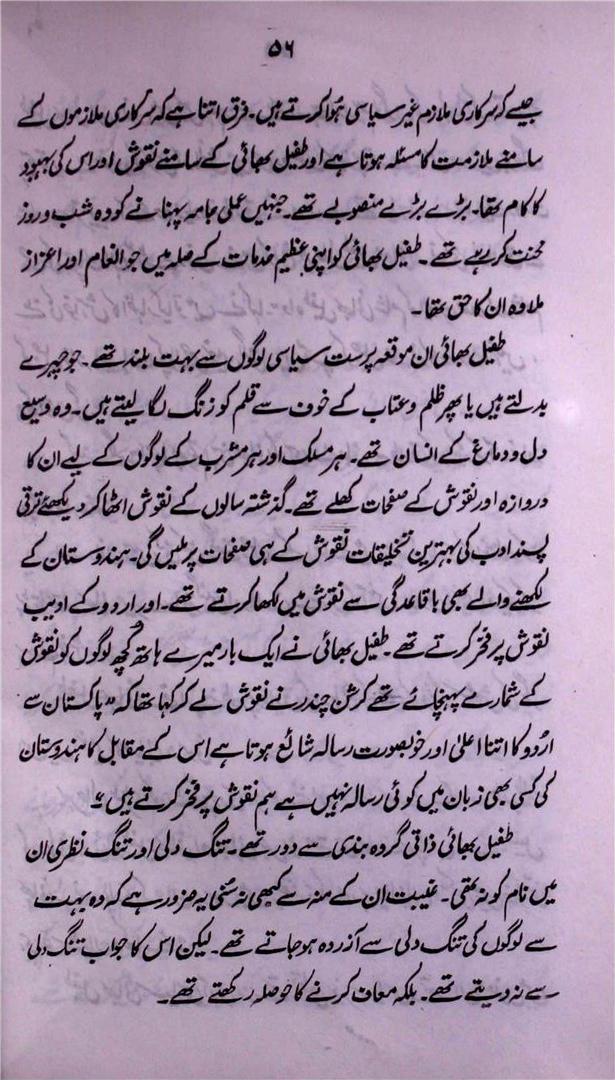 ۵۶
جیسے کہ سرکاری ملازم غیر سیاسی ہُوا کرتے ہیں۔ فرق اتنا ہے کہ سرکاری ملازموں کے
سامنے ملازمت کا مسئلہ ہوتا ہے اور طفیل بھائی کے سامنے نقوش اور اس کی بہبود
کا کام تھا۔ بڑے بڑے منصوبے تھے۔ جنہیں عملی جامہ پہنانے کو وہ شب و روز
محنت کر رہے تھے۔ طفیل بھائی کو اپنی عظیم خدمات کے صلہ میں جو انعام اور اعزاز
ملا وہ ان کا حق تھا۔
طفیل بھائی ان موقعہ پرست سیاسی لوگوں سے بہت بلند تھے۔ جو چہرے
بدلتے ہیں یا پھر ظلم و عتاب کے خوف سے قلم کو زنگ لگا لیتے ہیں۔ وہ وسیع
دل و دماغ کے انسان تھے۔ ہر مسلک اور ہر مشرب کے لوگوں کے لیے ان کا
دروازہ اور نقوش کے صفحات کھلے تھے۔ گذشتہ سالوں کے نقوش اٹھا کر دیکھئے ترقی
پسند ادب کی بہترین تخلیقات نقوش کے ہی صفحات پر ملیں گی۔ ہندوستان کے
لکھنے والے بھی باقاعدگی سے نقوش میں لکھا کرتے تھے۔ اور اردو کے ادیب
نقوش پر فخر کرتے تھے۔ طفیل بھائی نے ایک بار میرے ہاتھ کچھ لوگوں کو نقوش
کے شمارے پہنچائے تھے کرشن چندر نے نقوش لے کر کہا تھا کہ "پاکستان سے
اُردو کا اتنا اعلیٰ اور خوبصورت رسالہ شائع ہوتا ہے اس کے مقابل کا ہندوستان
کی کسی بھی زبان میں کوئی رسالہ نہیں ہے ہم نقوش پر فخر کرتے ہیں"
طفیل بھائی ذاتی گروہ بندی سے دور تھے۔ تنگ دلی اور تنگ نظری ان
میں نام کو نہ تھی۔ غیبت ان کے منہ سے کبھی نہ سُنی یہ ضرور ہے کہ وہ بہت
سے لوگوں کی تنگ دلی سے آزردہ ہو جاتے تھے۔ لیکن اس کا جواب تنگ دلی
سے نہ دیتے تھے۔ بلکہ معاف کرنے کا حوصلہ رکھتے تھے۔